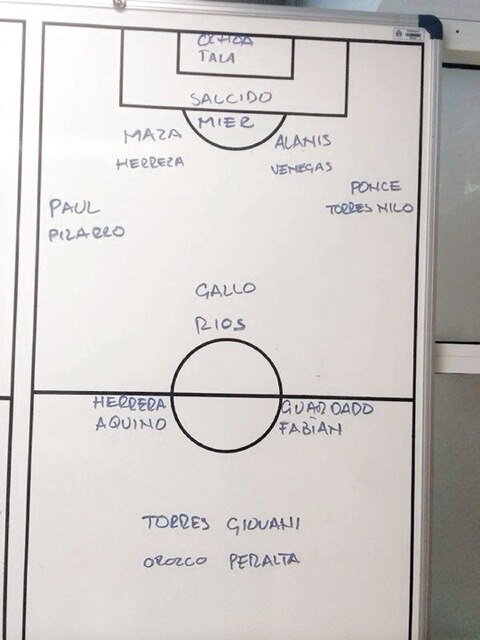 OCHOA
TALA
SALCIDO
MIER
MAZA
ALANIS
HERRERA
VENEGAS
PONCE
TORRES NILO
PAUL
PIZARRO
GALLO
RIOS
HERRERA
GUARDADO
AQUINO
FABIAN
TORRES GIOVANI
OROZCO PERALTA